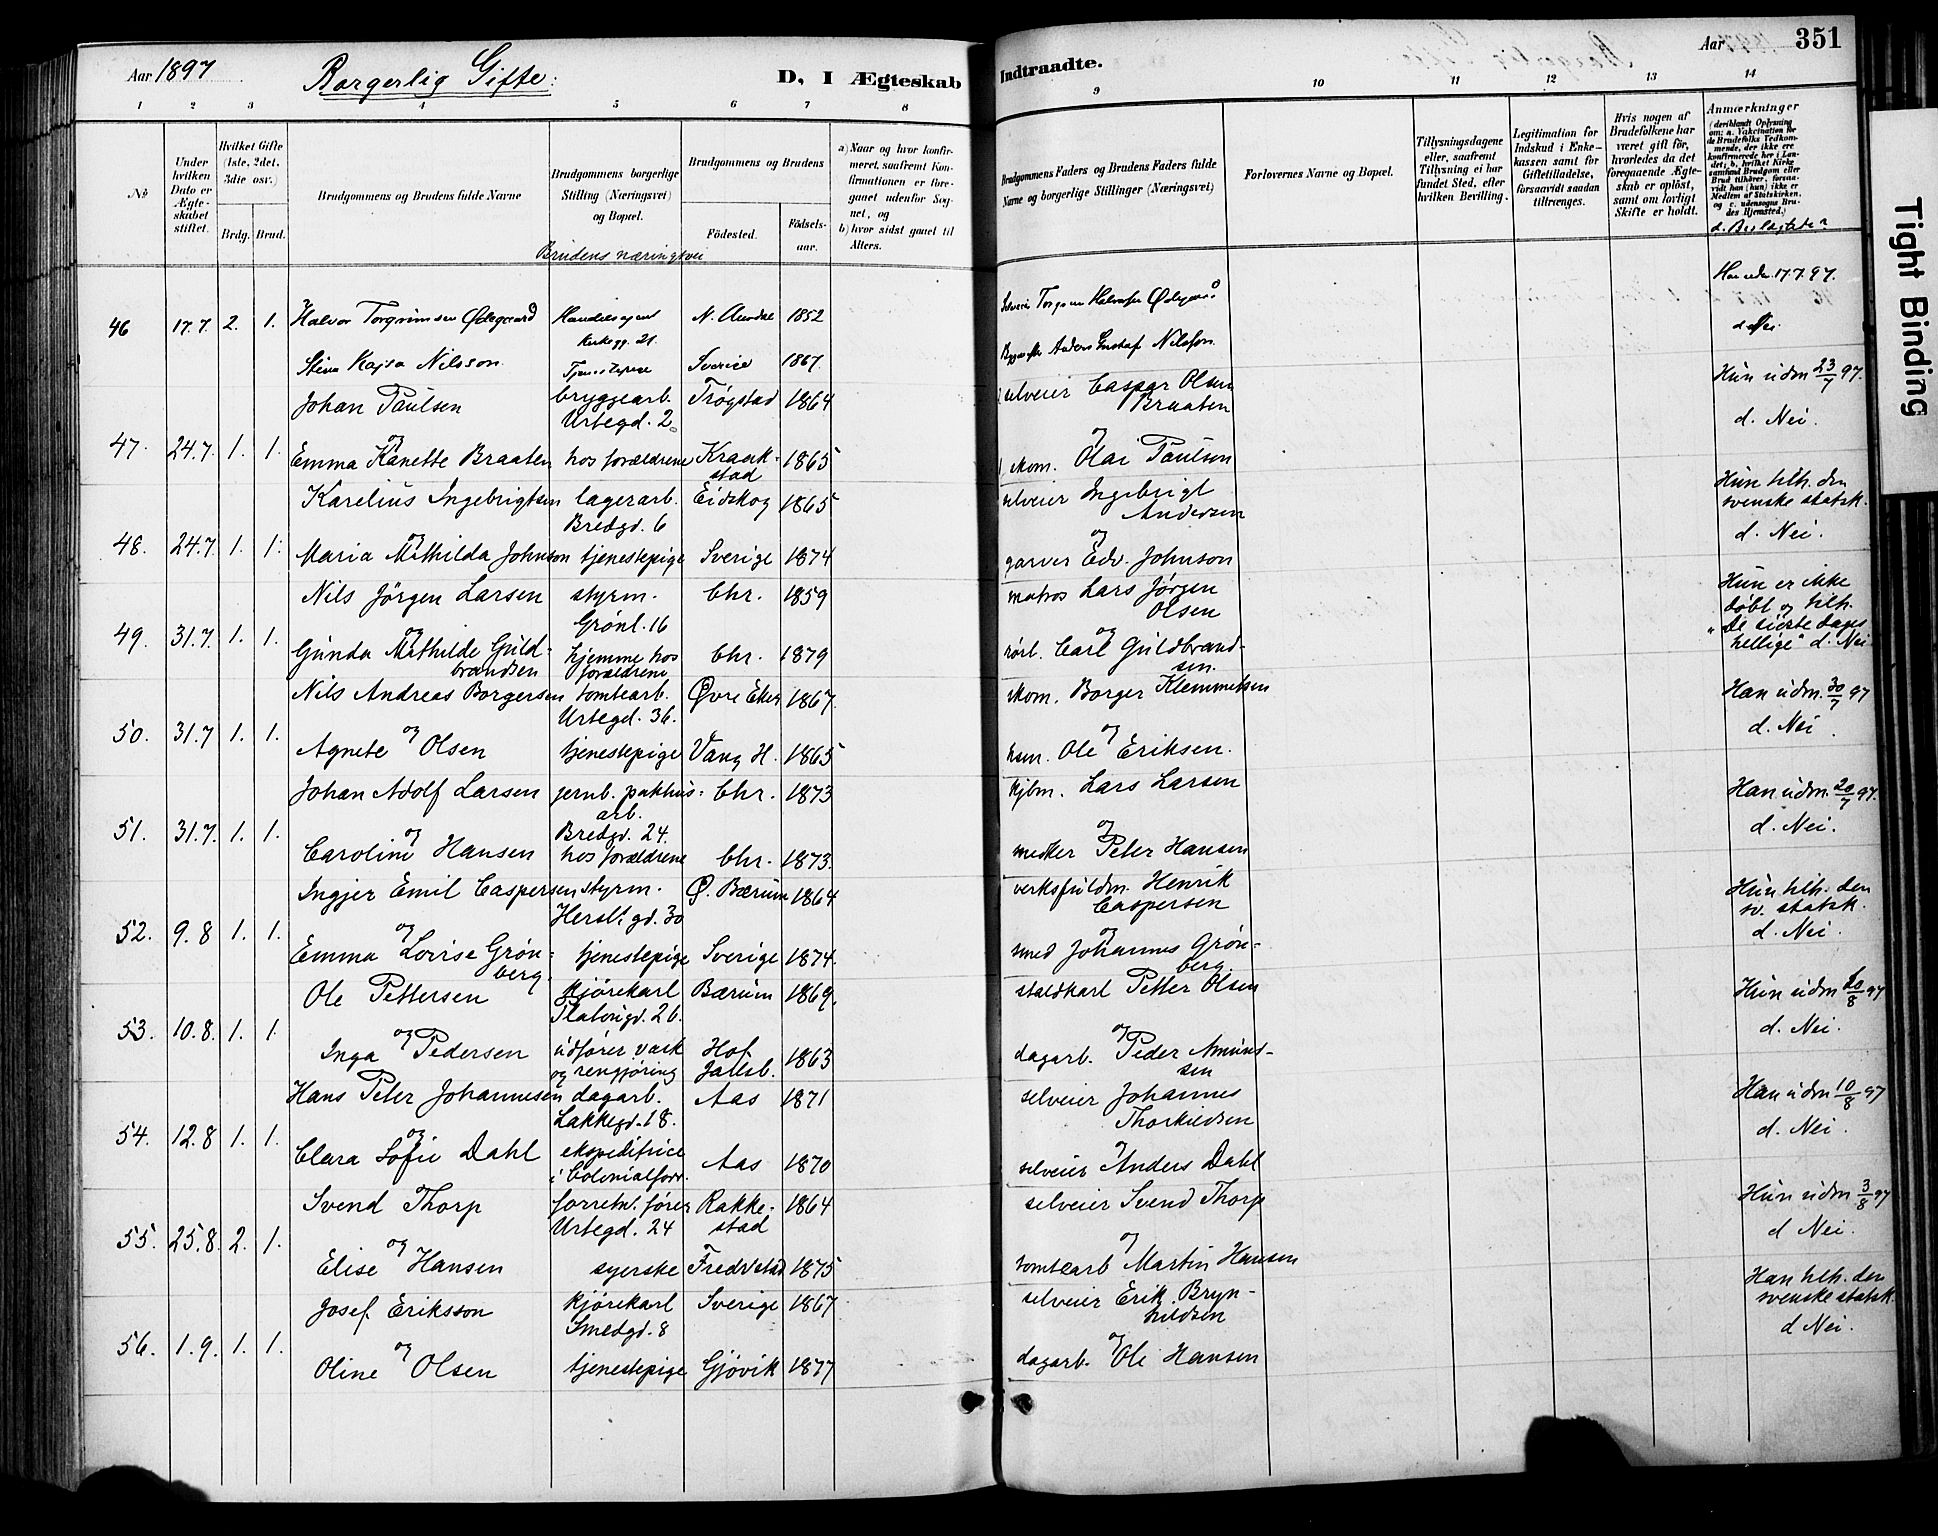 Aar 1897
Borgerlig Gifte:
D, I Ægteskab
Indtraadte.
Aar
351
1 2 3 4 5 6 7 8 9 10 11 12 13 14
No
Under hvilken Dato er Ægteskabet stiftet.
Hvilket Gifte (1ste, 2det, 3die osv.)
Brdg. Brud.
Brudgommens og Brudens fulde Navne
Brudgommens borgerlige Stilling (Næringsvei) og Bopæl.
Brudens næringsvei
Brudgommens og Brudens
Fødested. Fødselsaar.
a) Naar og hvor konfirmeret, saafremt Konfirmationen er foregaaet udenfor Sognet, og
b) hvor sidst gaaet til Alters.
Brudgommens Faders og Brudens Faders fulde Navne og borgerlige Stillinger (Næringsvei)
Forlovernes Navne og Bopæl.
Tillysningsdagene eller, saafremt Tillysning ei har fundet Sted, efter hvilken Bevilling.
Legitimation for Indskud i Enkekassen samt for Giftetilladelse, forsaavidt saadan tiltrænges.
Hvis nogen af Brudefolkene har været gift før, hvorledes da det foregaaende Ægteskab er opløst, samt om lovligt Skifte er holdt.
Anmærkninger (deriblandt Oplysning om: a. Vakcination for de Brudefolks Vedkommende, der ikke ere konfirmerede her i Landet; b. hvilket Kirkesamfund Brudgom eller Brud tilhører, forsaavidt han (hun) ikke er Medlem af Statskirken, og c. udensogns Brudes Hjemsted.)
d. Beslægtede?
46 17.7. 2. 1. Halvor Torgrimsen Ødegaard Handelsagent N. Aurdal 1852 Selveier Torgrim Halvorsen Ødegaard Han udm. 17.7.97.
Kirkegg. 21. d. Nei.
Stina Kajsa Nilsson Tjenestepige Sverige 1867. Anders Gustaf Nilsson.
Johan Paulsen bryggearb. Trøgstad 1864 selveier Caspar Olsen Braaten Hun udm 23/7 97.
Urtegd. 2. d. Nei.
47. 24.7. 1. 1. og og
Emma Kanette Braaten hos forældrene Kraakstad 1865 skom. Olai Paulsen
Karelius Ingebrigtsen lagerarb. Eidskog 1865 selveier Ingebrigt Andersen Hun tilh. den svenske statsk.
Bredgd. 6 d. Nei.
48. 24.7. 1. 1. og og
Maria Mathilda Johnson tjenestepige Sverige 1874 garver Edv. Johnson
Nils Jörgen Larsen styrm. Chr. 1859 matros Lars Jørgen Olsen Hun er ikke døbt og tilh. "De sidste dages hellige" d. Nei
Grønl. 16
49. 31.7. 1. 1. og og
Gunda Mathilde Guldbrandsen hjemme hos forældrene Chr. 1879 rørl. Carl Guldbrandsen.
Nils Andreas Borgersen tomtearb. Øvre Eker 1867. skom. Borger Klemmetsen Han udm. 30/7 97
Urtegd. 36. d. Nei.
50. 31.7 1. 1. og og
Agnete Olsen tjenestepige Vang H. 1865 hsm. Ole Eriksen.
Johan Adolf Larsen jernb. pakhusarb. Chr. 1873 kjbm. Lars Larsen Han udm. 20/7 97.
Bredgd. 24. d. Nei.
51. 31.7. 1. 1. og og
Caroline Hansen hos forældrene Chr. 1873. medker Peter Hansen
Ingjer Emil Caspersen styrm. Ø. Bærum 1864 verksfuldm. Henrik Caspersen Hun tilh. den sv. statsk.
Herslt.gd. 30 d. Nei.
52. 9.8 1. 1. og og
Emma Lovise Grønberg. tjenestepige Sverige 1874. smed Johannes Grønberg.
Ole Pettersen kjørekarl Bærum 1869. staldkarl Petter Olsen Hun udm 20/8 97
Platougd. 26. d. Nei.
53. 10.8. 1. 1. og og
Inga Pedersen udfører vask og rengjøring Hof Jarlsb. 1863 dagarb. Peder Amundsen
Hans Peter Johannesen dagarb. Aas 1871 selveier Johannes Thorkildsen Han udm 10/8 97
Lakkegd. 18. d. Nei.
54. 12.8 1. 1. og og
Clara Sofie Dahl ekspeditrice i Colonialforr. Aas 1870 selveier Anders Dahl
Svend Thorp forretn. fører Rakkestad 1864 selveier Svend Thorp Hun udm 3/8 97
Urtegd. 24 d Nei.
55. 25.8. 2. 1. og og
Elise Hansen syerske Fredrstad 1875 tomtearb Martin Hansen
Josef Eriksson kjørekarl Sverige 1867 selveier Erik Brynhildsen Han tilh. den svenske statsk.
Smedgd. 8 d Nei.
56. 1.9. 1. 1. og og
Oline Olsen tjenestepige Gjøvik 1877 dagarb. Ole Hansen
Tight Binding